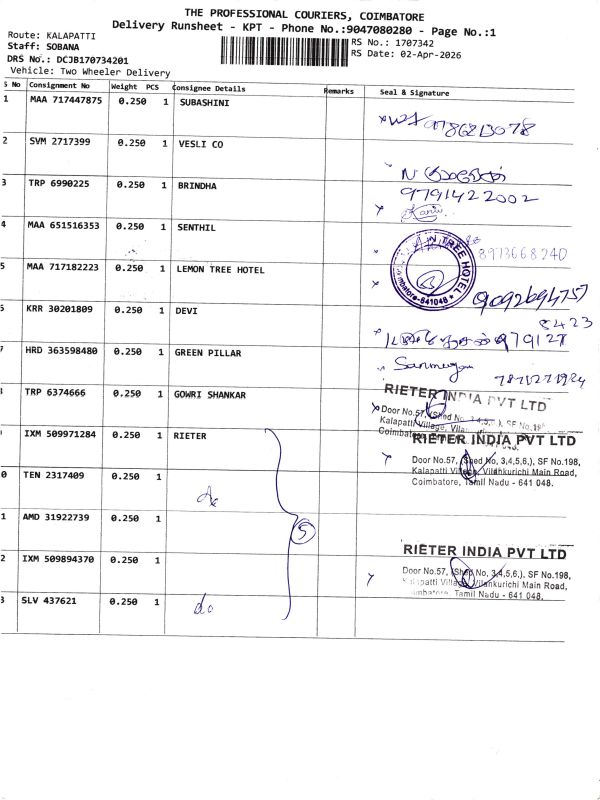 THE PROFESSIONAL COURIERS, COIMBATORE
Delivery Runsheet - KPT - Phone No.:9047080280 - Page No.:1
Route: KALAPATTI
Staff: SOBANA
DRS No.: DCJB170734201
Vehicle: Two Wheeler Delivery
RS No.: 1707342
RS Date: 02-Apr-2026
S No Consignment No Weight PCS Consignee Details Remarks Seal & Signature
1 MAA 717447875 0.250 1 SUBASHINI
9786213078
2 SVM 2717399 0.250 1 VESLI CO
N
3 TRP 6990225 0.250 1 BRINDHA
9791422002
4 MAA 651516353 0.250 1 SENTHIL
8973668240
5 MAA 717182223 0.250 1 LEMON TREE HOTEL
N TREE HOTEL
Coimbatore-641048
9092694757
6 KRR 30201809 0.250 1 DEVI
8423
979127
7 HRD 363598480 0.250 1 GREEN PILLAR
8 TRP 6374666 0.250 1 GOWRI SHANKAR
RIETER INDIA PVT LTD
Door No.57, (Shed No, 3,4,5,6,), SF No.198,
Kalapatti Village, Vilankurichi
9 IXM 509971284 0.250 1 RIETER
RIETER INDIA PVT LTD
Door No.57, (Shed No, 3,4,5,6,), SF No.198,
Kalapatti Village, Vilankurichi Main Road,
Coimbatore, Tamil Nadu - 641 048.
0 TEN 2317409 0.250 1
do
1 AMD 31922739 0.250 1
5
2 IXM 509894370 0.250 1
RIETER INDIA PVT LTD
Door No.57, (Shed No, 3,4,5,6,), SF No.198,
Kalapatti Village, Vilankurichi Main Road,
Coimbatore, Tamil Nadu - 641 048.
3 SLV 437621 0.250 1
do